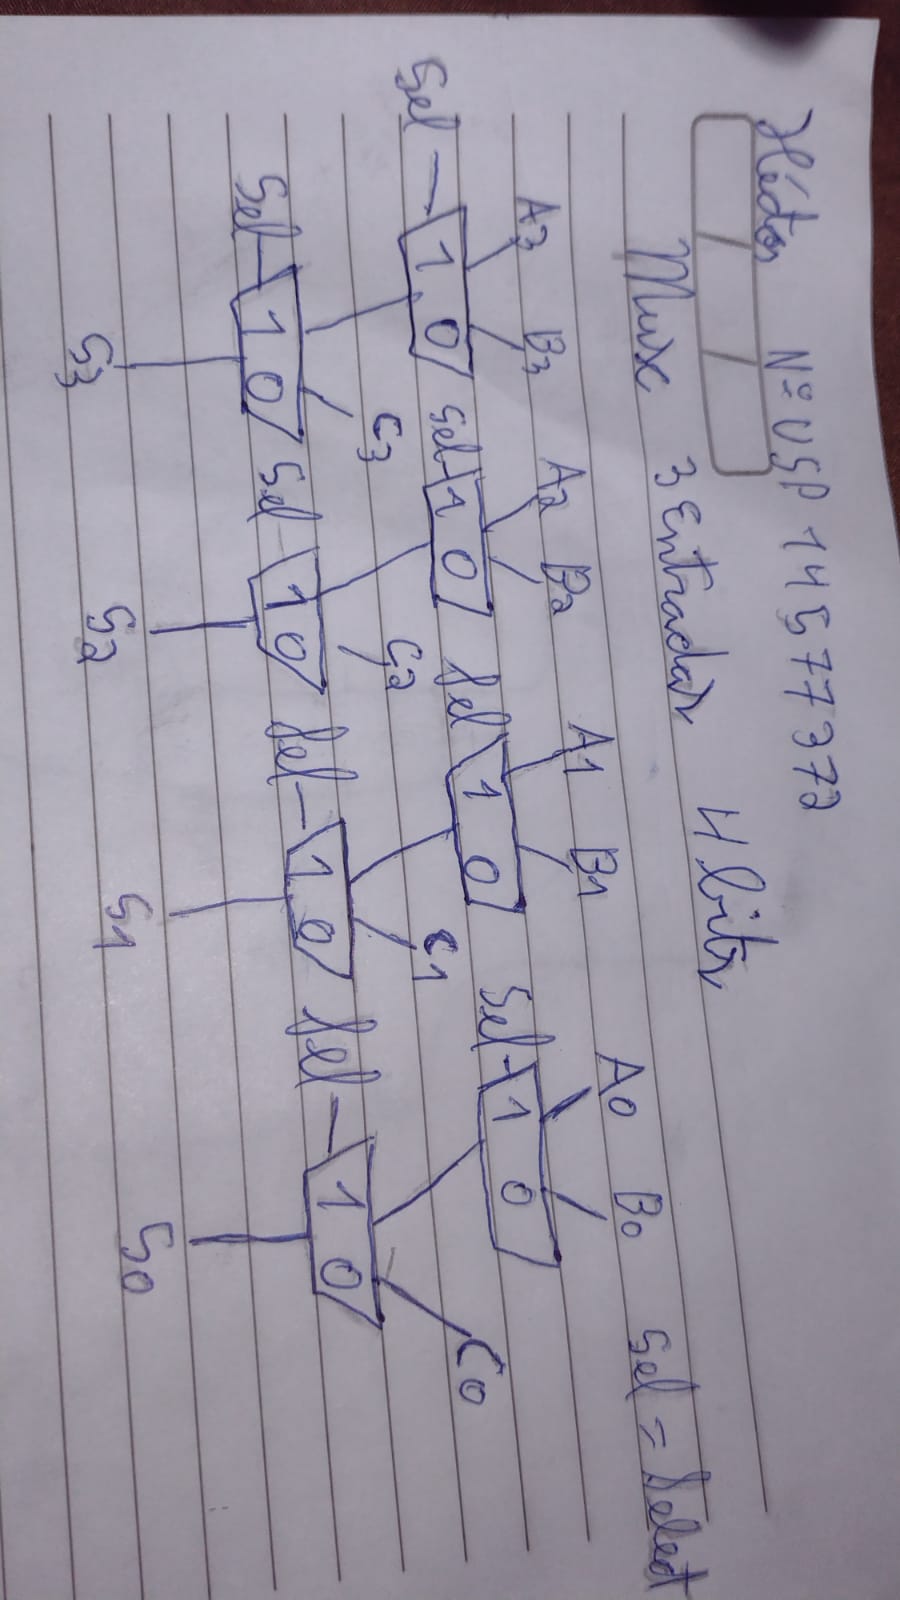 Héctor Nº USP 14577372
Mux 3 Entradas 4 bits Sel = Select
A3 B3 A2 B2 A1 B1 A0 B0
Sel 1 0 Sel 1 0 Sel 1 0 Sel 1 0
C3 C2 C1 C0
Sel 1 0 Sel 1 0 Sel 1 0 Sel 1 0
S3 S2 S1 S0